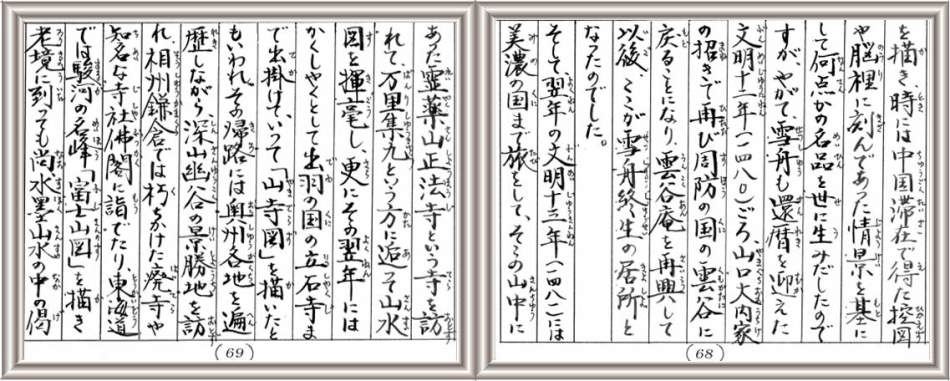 を描き、時には中国滞在で得た控図
や脳裡に刻んであった情景を基に
して何点かの名品を世に生みだしたので
すが、やがて、雪舟も還暦を迎えた
文明十二年(一四八〇)ごろ、山口大内家
の招きで再び周防の国の雲谷に
戻ることになり、雲谷庵を再興して
以後、ここが雪舟終生の居所と
なったのでした。
そして翌年の文明十三年(一四八一)には
美濃の国まで旅をして、そこの山中に
(68)
あった霊薬山正法寺という寺を訪
れて、万里集九という方に逅って山水
図を揮毫し、更にその翌年には
かくしやくとして出羽の国の立石寺ま
で出掛けていって「山寺図」を描いたと
もいわれ、その帰路には奥州各地を遍
歴しながら深山幽谷の景勝地を訪
れ、相州鎌倉では朽ちかけた廃寺や
知名な寺社佛閣に詣でたり、東海道
では駿河の名峰「富士山図」を描き
老境に到っても尚、水墨山水の中の偈
(69)